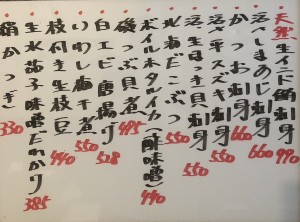 天然生インド鮪刺身 990
活〆しめあじ刺身 660
かつお刺身 660
活〆平スズキ刺身 550
活つぶ貝刺身 550
北海だこぶつ 550
ボイルホタルイカ(酢味噌) 440
磯つぶ貝煮 495
白エビ唐揚げ 528
いわし梅干煮 550
枝付き生枝豆 440
生水茄子味噌だれかけ 385
絹かつぎ 330